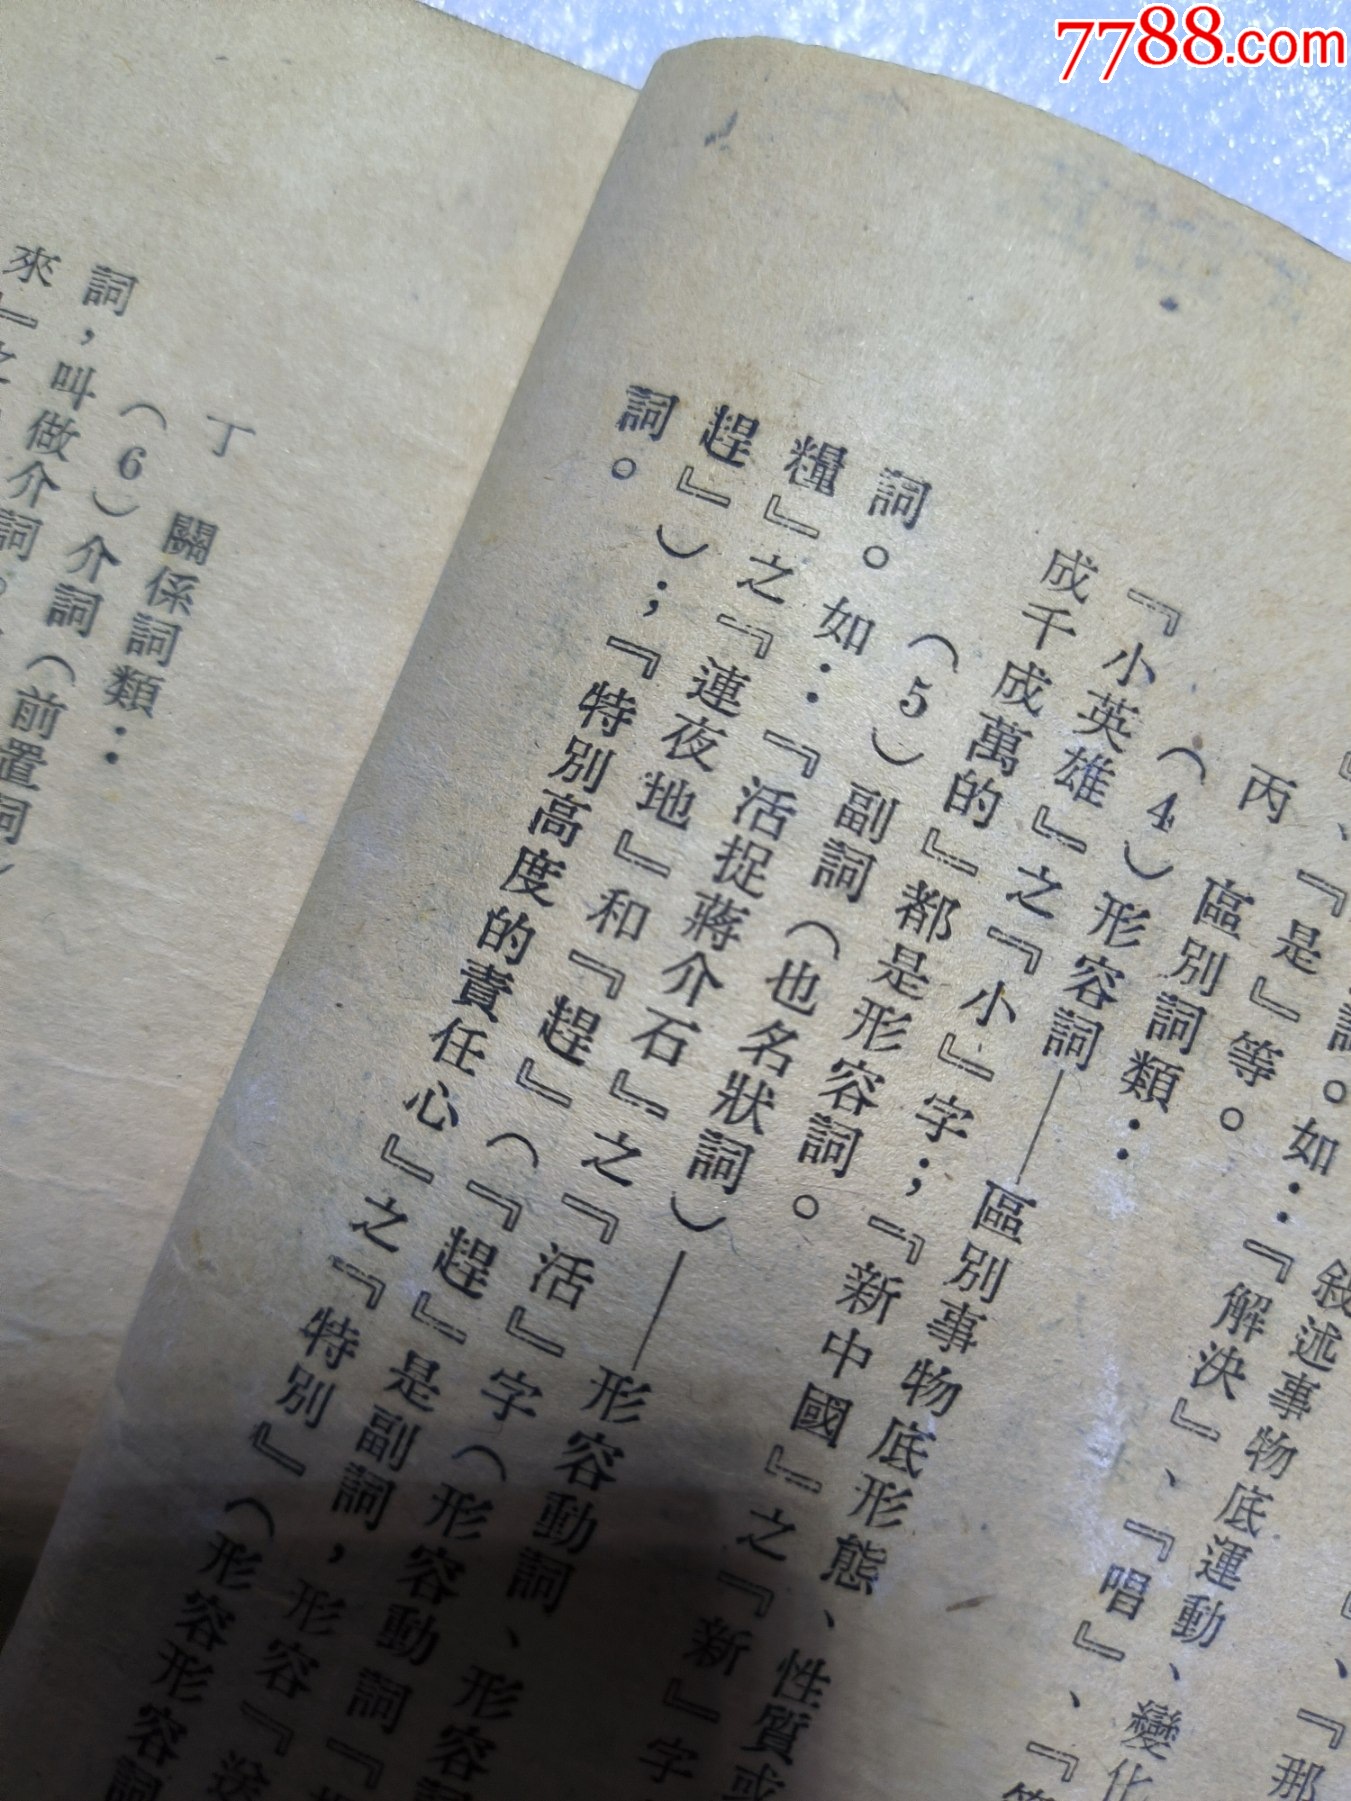 7788.com
』、『那
『是』等。
詞。如：『解決』、『唱』、『
敍述事物底運動、變化
丙 區別詞類：
（4）形容詞——區別事物底形態、性質或
『小英雄』之『小』字；『新中國』之『新』字
成千成萬的』都是形容詞。
（5）副詞（也名狀詞）——形容動詞、形容
詞。如：『活捉蔣介石』之『活』字（形容動詞『捉
糧』之『連夜地』和『趕』（『趕』是副詞，形容『送
趕』）；『特別高度的責任心』之『特別』（形容形容詞
詞。
丁 關係詞類：
（6）介詞（前置詞）
詞，叫做介詞。
來』之